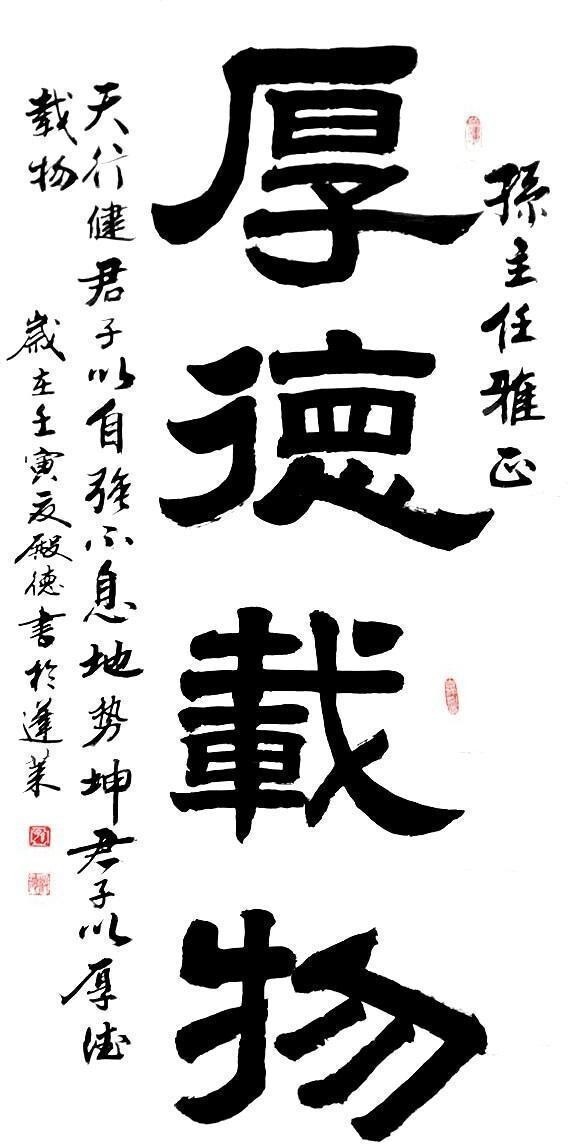 孫主任雅正
厚德載物
天行健君子以自强不息地势坤君子以厚德
載物
歲在壬寅夏殿德書於蓬萊